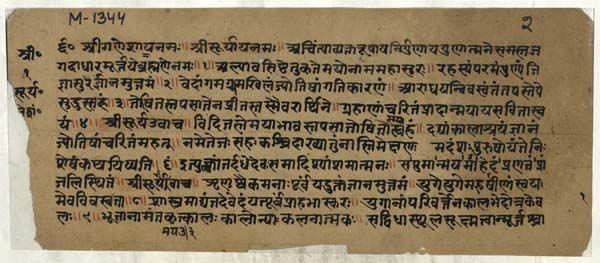 M-1344
२
श्री॰
सूर्य॰
६॰ श्रीगणेशायनमः॥ श्रीसूर्यायनमः॥ अचिंत्याव्यक्तरूपायनिर्गुणायगुणात्मनेसमस्तज
गदाधारमूर्त्तयेब्रह्मणेनमः॥१ अल्पावशिष्टेतुकृतेमयोनाममहासुरः रहस्यंपरमंपुण्यंजि
ज्ञासुर्ज्ञानमुत्तमं॥२ वेदांगमग्र्यमखिलंज्योतिषांगतिकारणं आराधयन्विवस्वंतंतपस्तेपे
सुदुस्तरं॥३ तोषितस्तपसातेनप्रीतस्तस्मैवरार्थिने ग्रहाणांचरितंप्रादान्मयायसवितास्व
यं॥४ श्रीसूर्यउवाच विदितस्तेमयाभावस्तपसातोषितोस्म्यहं दद्यांकालाश्रयंज्ञानं
ज्योतिषांचरितंमहत् नमेतेजःसहःकश्चिदाख्यातुंनास्तिमेक्षणः मदंशःपुरुषोयंतेनिः
शेषंकथयिष्यति॥६ इत्युक्त्वांतर्दधेदेवःसमादिश्यांशमात्मनः सपुमान्मयमाहेदंप्रणतंप्रां
जलिस्थितं श्रीसूर्यउवाच शृणुष्वैकमनाःपूर्वंयदुक्तंज्ञानमुत्तमं युगेयुगेमहर्षीणांस्वय
मेवविवस्वता॥८ शास्त्रमाद्यंतदेवेदंयत्पूर्वंप्राहभास्करः युगानांपरिवर्त्तेनकालभेदोत्रकेव
लः॥९ भूतानामंतकृत्कालः कालोन्यः कलनात्मकः सद्विधास्थूलसूक्ष्मत्वान्मूर्त्तश्चा